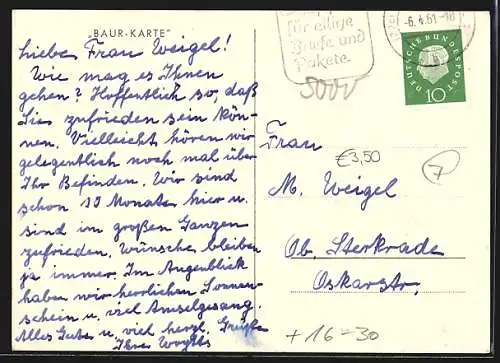 „BAUR-KARTE"
Liebe Frau Weigel!
Wie mag es Ihnen
gehen? Hoffentlich so, daß
Sie zufrieden sein kön-
nen. Vielleicht hören wir
gelegentlich noch mal über
Ihr Befinden. Wir sind
schon 10 Monate hier u.
sind im großen Ganzen
zufrieden. Wünsche bleiben
ja immer. Im Augenblick
haben wir herrlichen Sonnen-
schein u. viel Amselgesang.
Alles Gute u. viel herzl. Grüße
Ihre
für eilige
Briefe und
Pakete.
-6.4.61-16
DEUTSCHE BUNDESPOST
10
5000
€3,50
7
Frau
M. Weigel
Ob. Sterkrade
Oskarstr.
+16=30